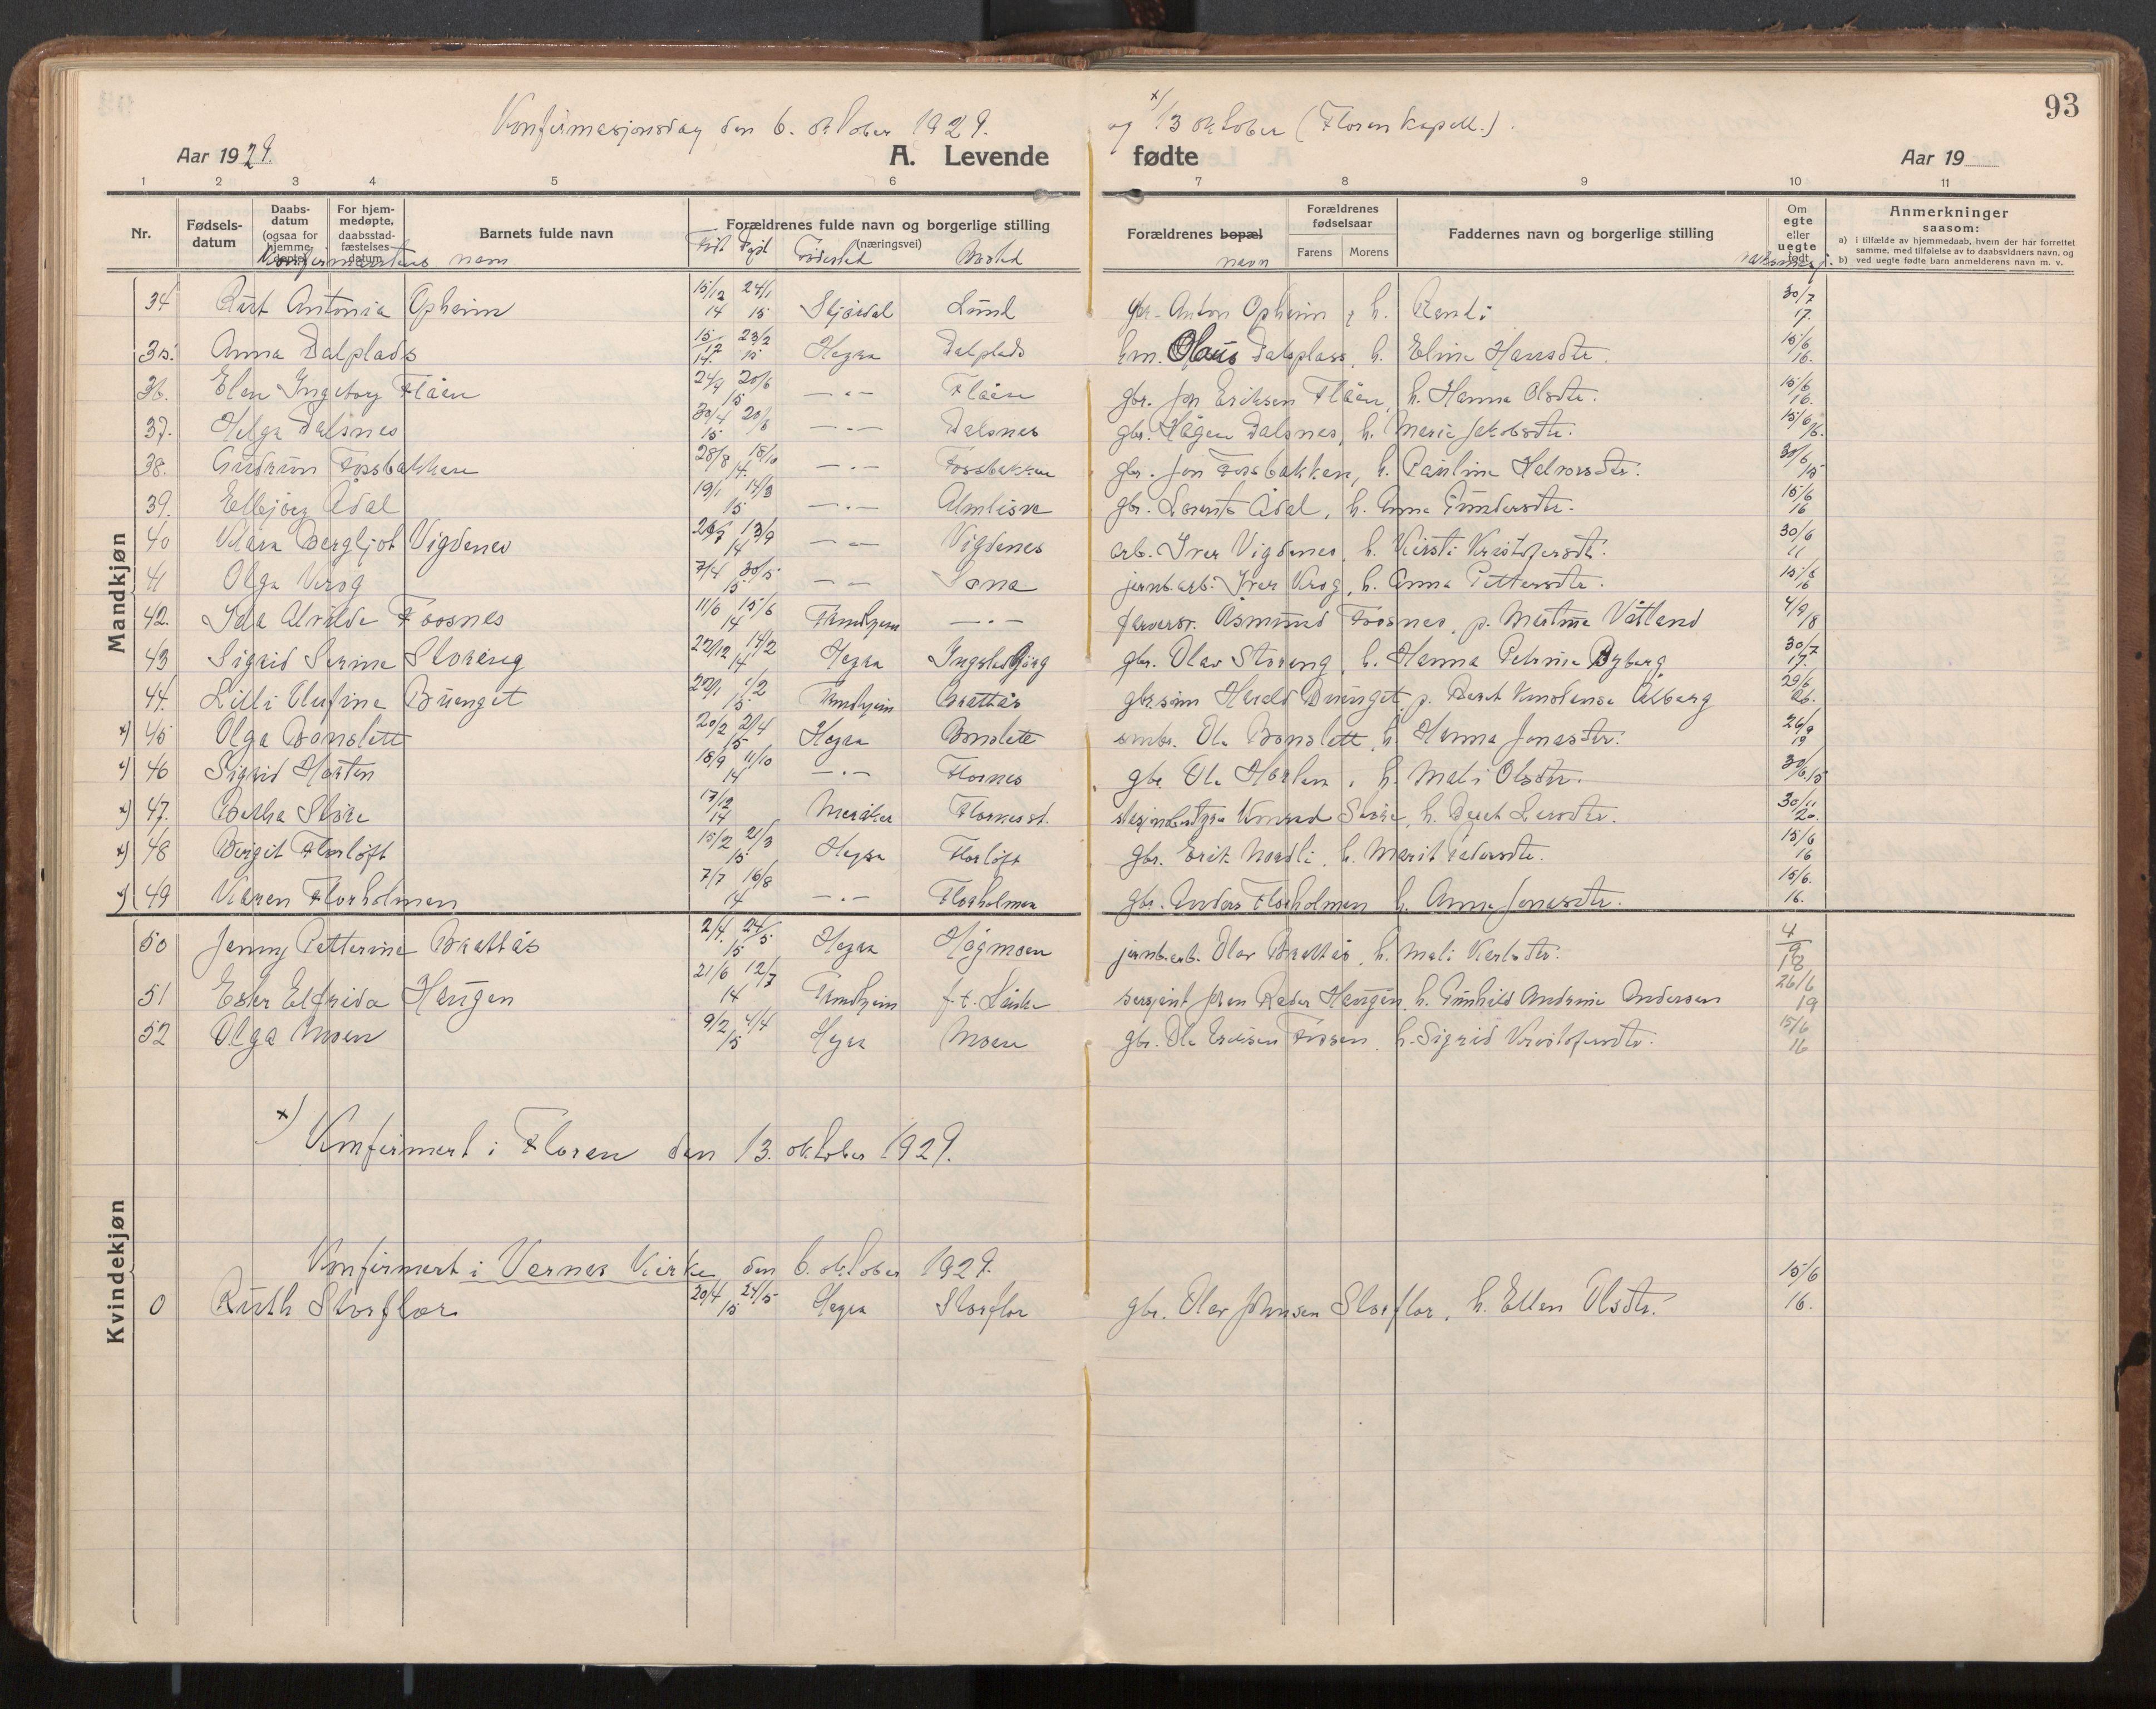 93
Konfirmasjonsdag den 6. oktober 1929. og x) 13 oktober (Floren kapell.).
Aar 1929. A. Levende fødte Aar 19
1 2 3 4 5 6 7 8 9 10 11
Nr. Fødsels-datum Daabs-datum (ogsaa for hjemme-døpte) For hjem-medøpte, daabsstad-fæstelses datum Barnets fulde navn Forældrenes fulde navn og borgerlige stilling (næringsvei) Forældrenes bopæl Forældrenes fødselsaar Farens Morens Faddernes navn og borgerlige stilling Om egte eller uegte født Anmerkninger saasom: a) i tilfælde av hjemmedaab, hvem der har forrettet samme, med tilføielse av to daabsvidners navn, og b) ved uegte fødte barn anmelderens navn m. v.
Konfirmantens navn Født Døpt Fødested Bosted navn vaksinert
Mandkjøn
34 Rut Antonia Opheim 15/12 14 24/1 15 Stjørdal Lund gbr. Anton Opheim, h. Randi 30/7 17.
35. Anna Dalplads 15/12 14. 23/2 15 Hegra Dalplads hm. Olaus Dalsplass, h. Eline Hansdtr. 15/6 16.
36. Elen Ingeborg Flåen 24/4 20/6 15 — " — Flåen gbr. Jon Eriksen Flåen, h. Hanna Olsdtr. 15/6 16.
37. Helga Dalsnes 30/4 20/6 15 — " — Dalsnes gbr. Hågen Dalsnes, h. Marie Jakobsdtr. 15/6 16.
38. Gudrun Fossbakken 28/8 18/10 14. — " — Fossbakken gbr. Jon Fossbakken, h. Pauline Halvorsdtr. 30/6 15
39. Elbjørg Ådal 19/1 14/3 15 — " — Almlisve gbr. Lorents Ådal, h. Anna Gundersdtr. 15/6 16
40 Klara Bergljot Vigdenes 13/9 14 — " — Vigdenes arb. Iver Vigdenes, h. Kirsti Kristofersdtr. 30/6 11
41 Olga Krog 7/4 30/5 15 — " — Sona jernb.arb. Iver Krog, h. Anna Pettersdtr. 15/6 16
42. Ida Alvilde Foosnes 11/6 15/6 14 Trondhjem — " — Åsmund Foosnes, p. Martine Våtland 4/9 18
43 Sigrid Serine Storeng 22/12 14/2 14 Hegra gbr. Olav Storeng, h. Hanna Petrine Byberg 30/7 17.
44. Lilli Olufine Buenget 1/2 15 Trondhjem Brattås gbr.sønn Harald Buenget, p. Beret Konstanse Ålberg 29/6
x) 45 Olga Bonslett 20/2 2/4 15 Hegra Bonslett Ole Bonslett, h. Hanna Jonasdtr. 26/9 19
x) 46 Sigrid Horten 18/9 11/10 14 — " — Flornes gbr. Ole Horten, h. Mali Olsdtr. 30/6 15
x) 47. Bertha Støre 17/12 14 Meråker Flornes st. Konrad Støre, h. Beret Larsdtr. 30/11 20.
x) 48 Bergit Florløft 15/2 21/3 15 Hegra Florløft gbr. Erik Nordli, h. Marit Pedersdtr. 15/6 16
x) 49 Karen Florholmen 7/7 16/8 14 — " — Florholmen gbr. Anders Florholmen h. Anna Jonasdtr. 15/6. 16.
50 Jenny Petterine Brattås 2/4. 24/5 15 Hegra Høgmoen jernb.arb. Olav Brattås, h. Mali Karlsdtr. 4/9 18
51 Ester Elfrida Haugen 21/6 12/7 14 Trondhjem f.t. sersjant Johan Peder Haugen, h. Gunhild Andrine Andersen 26/6 19
52 Olga Moen 9/2 4/4 15 Hegra Moen gbr. Ole Eriksen Fossen, h. Sigrid Kristofersdtr. 15/6 16
x) Konfirmert i Floren den 13. oktober 1929.
Kvindekjøn
Konfirmert i Vernes Kirke den 6. oktober 1929.
0 Ruth Storflor 20/4 24/5 15 Hegra Storflor gbr. Olav Johnsen Storflor, h. Ellen Olsdtr. 15/6 16.